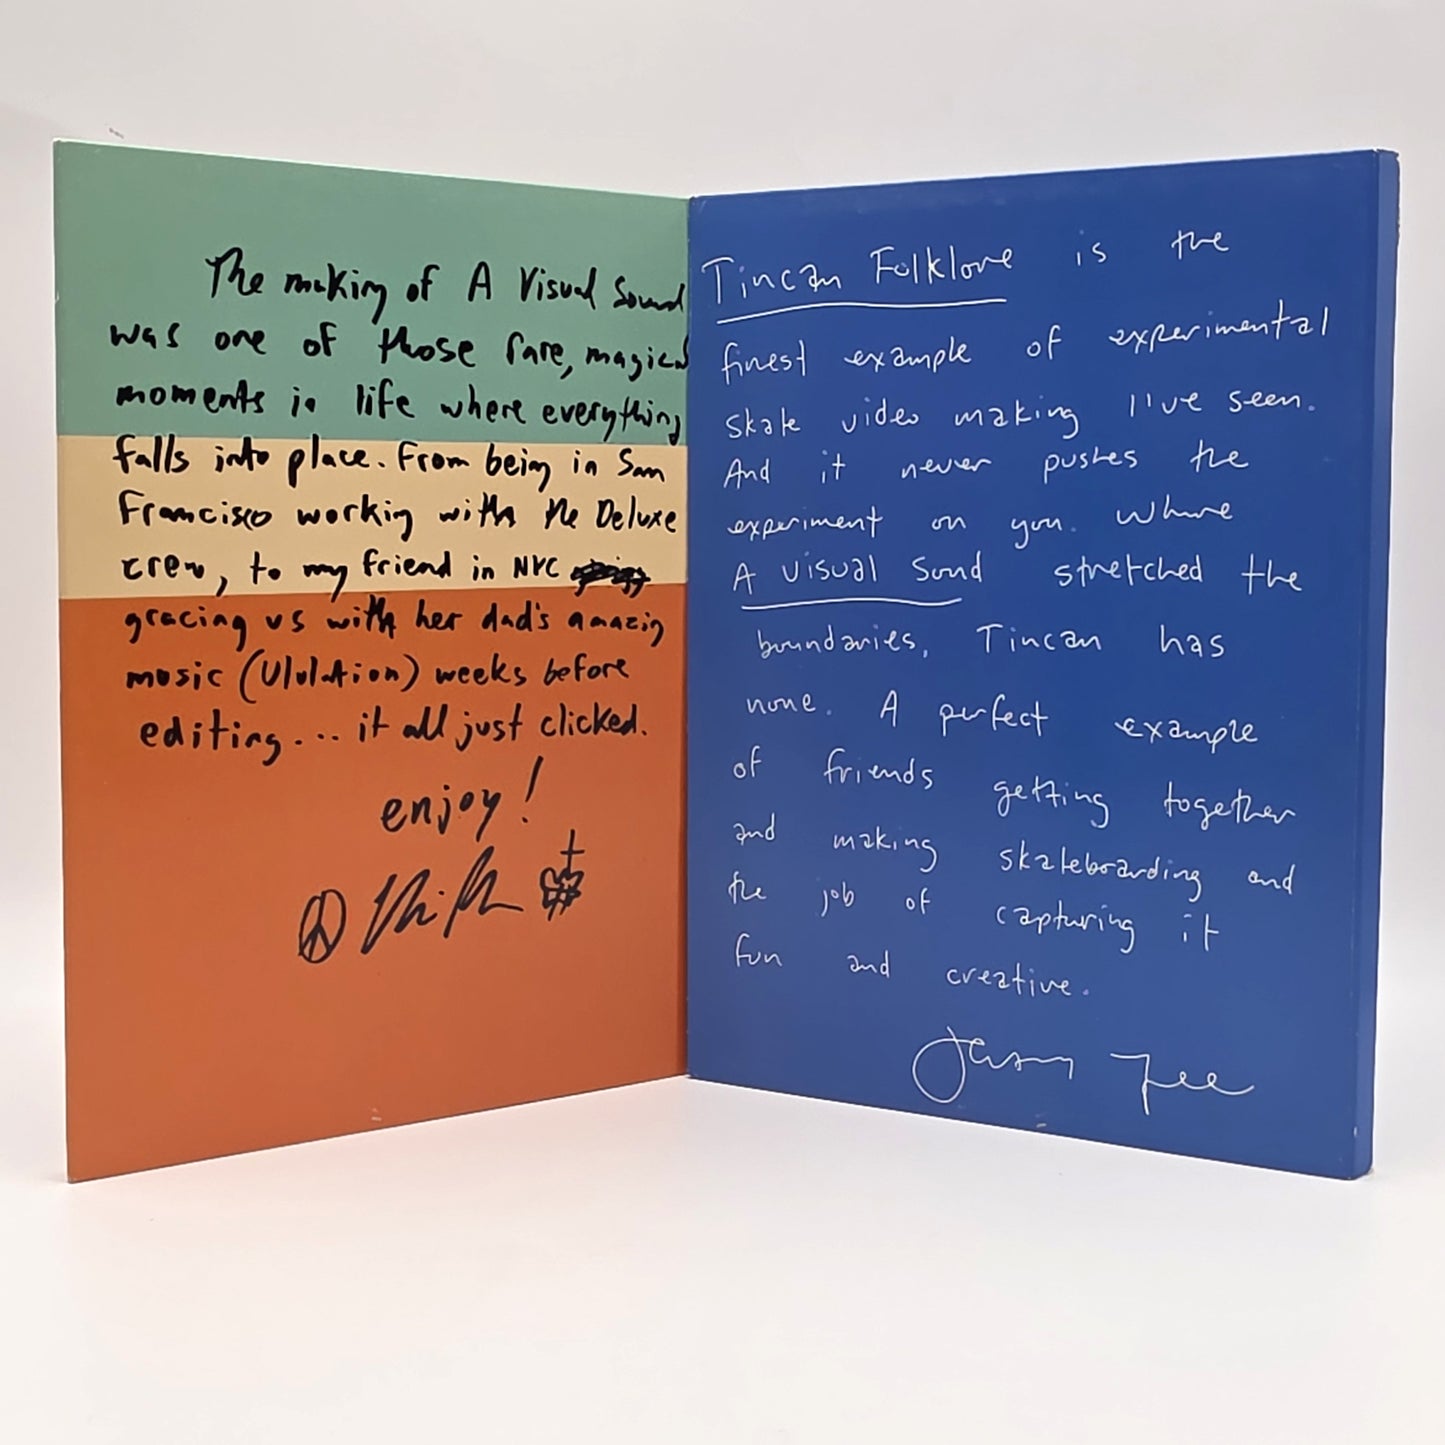 The making of A Visual Sound
was one of those rare, magical
moments in life where everything
falls into place. From being in San
Francisco working with the Deluxe
crew, to my friend in NYC
gracing us with her dad's amazing
music (Ululation) weeks before
editing... it all just clicked.
enjoy!
Tincan Folklore is the
finest example of experimental
skate video making I've seen.
And it never pushes the
experiment on you. Where
A Visual Sound stretched the
boundaries, Tincan has
none. A perfect example
of friends getting together
and making skateboarding and
the job of capturing it
fun and creative.
Jason Lee